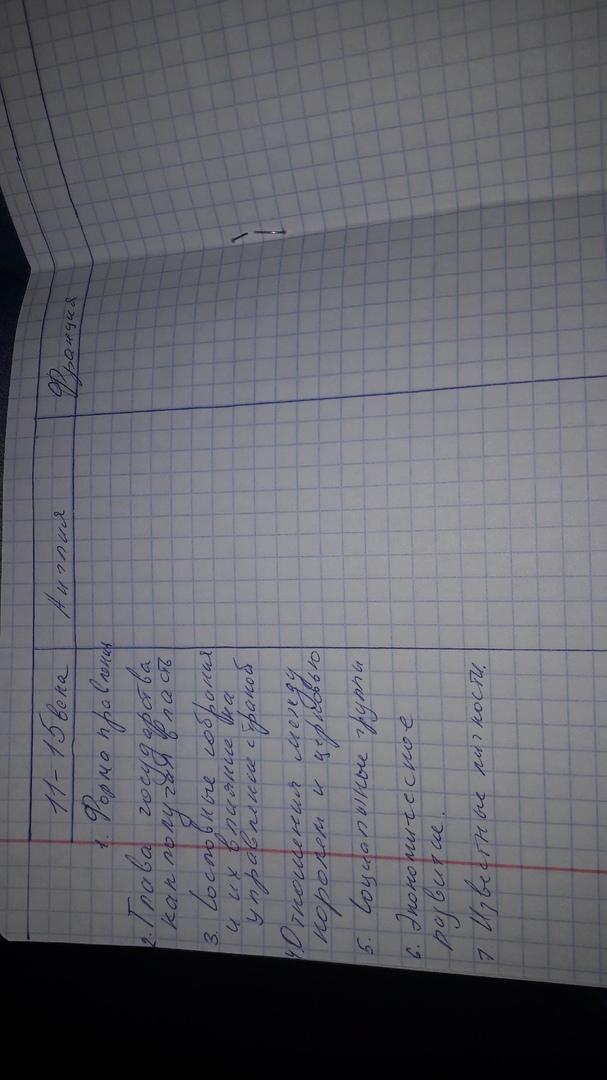 11-15 века
Англия
Франция
1. Форма правления
2. Глава государства
как получал власть
3. Сословные собрания
и их влияние на
управление страной
4. Отношения между
королем и церковью
5. Социальные группы
6. Экономическое
развитие.
7 Известные личности.